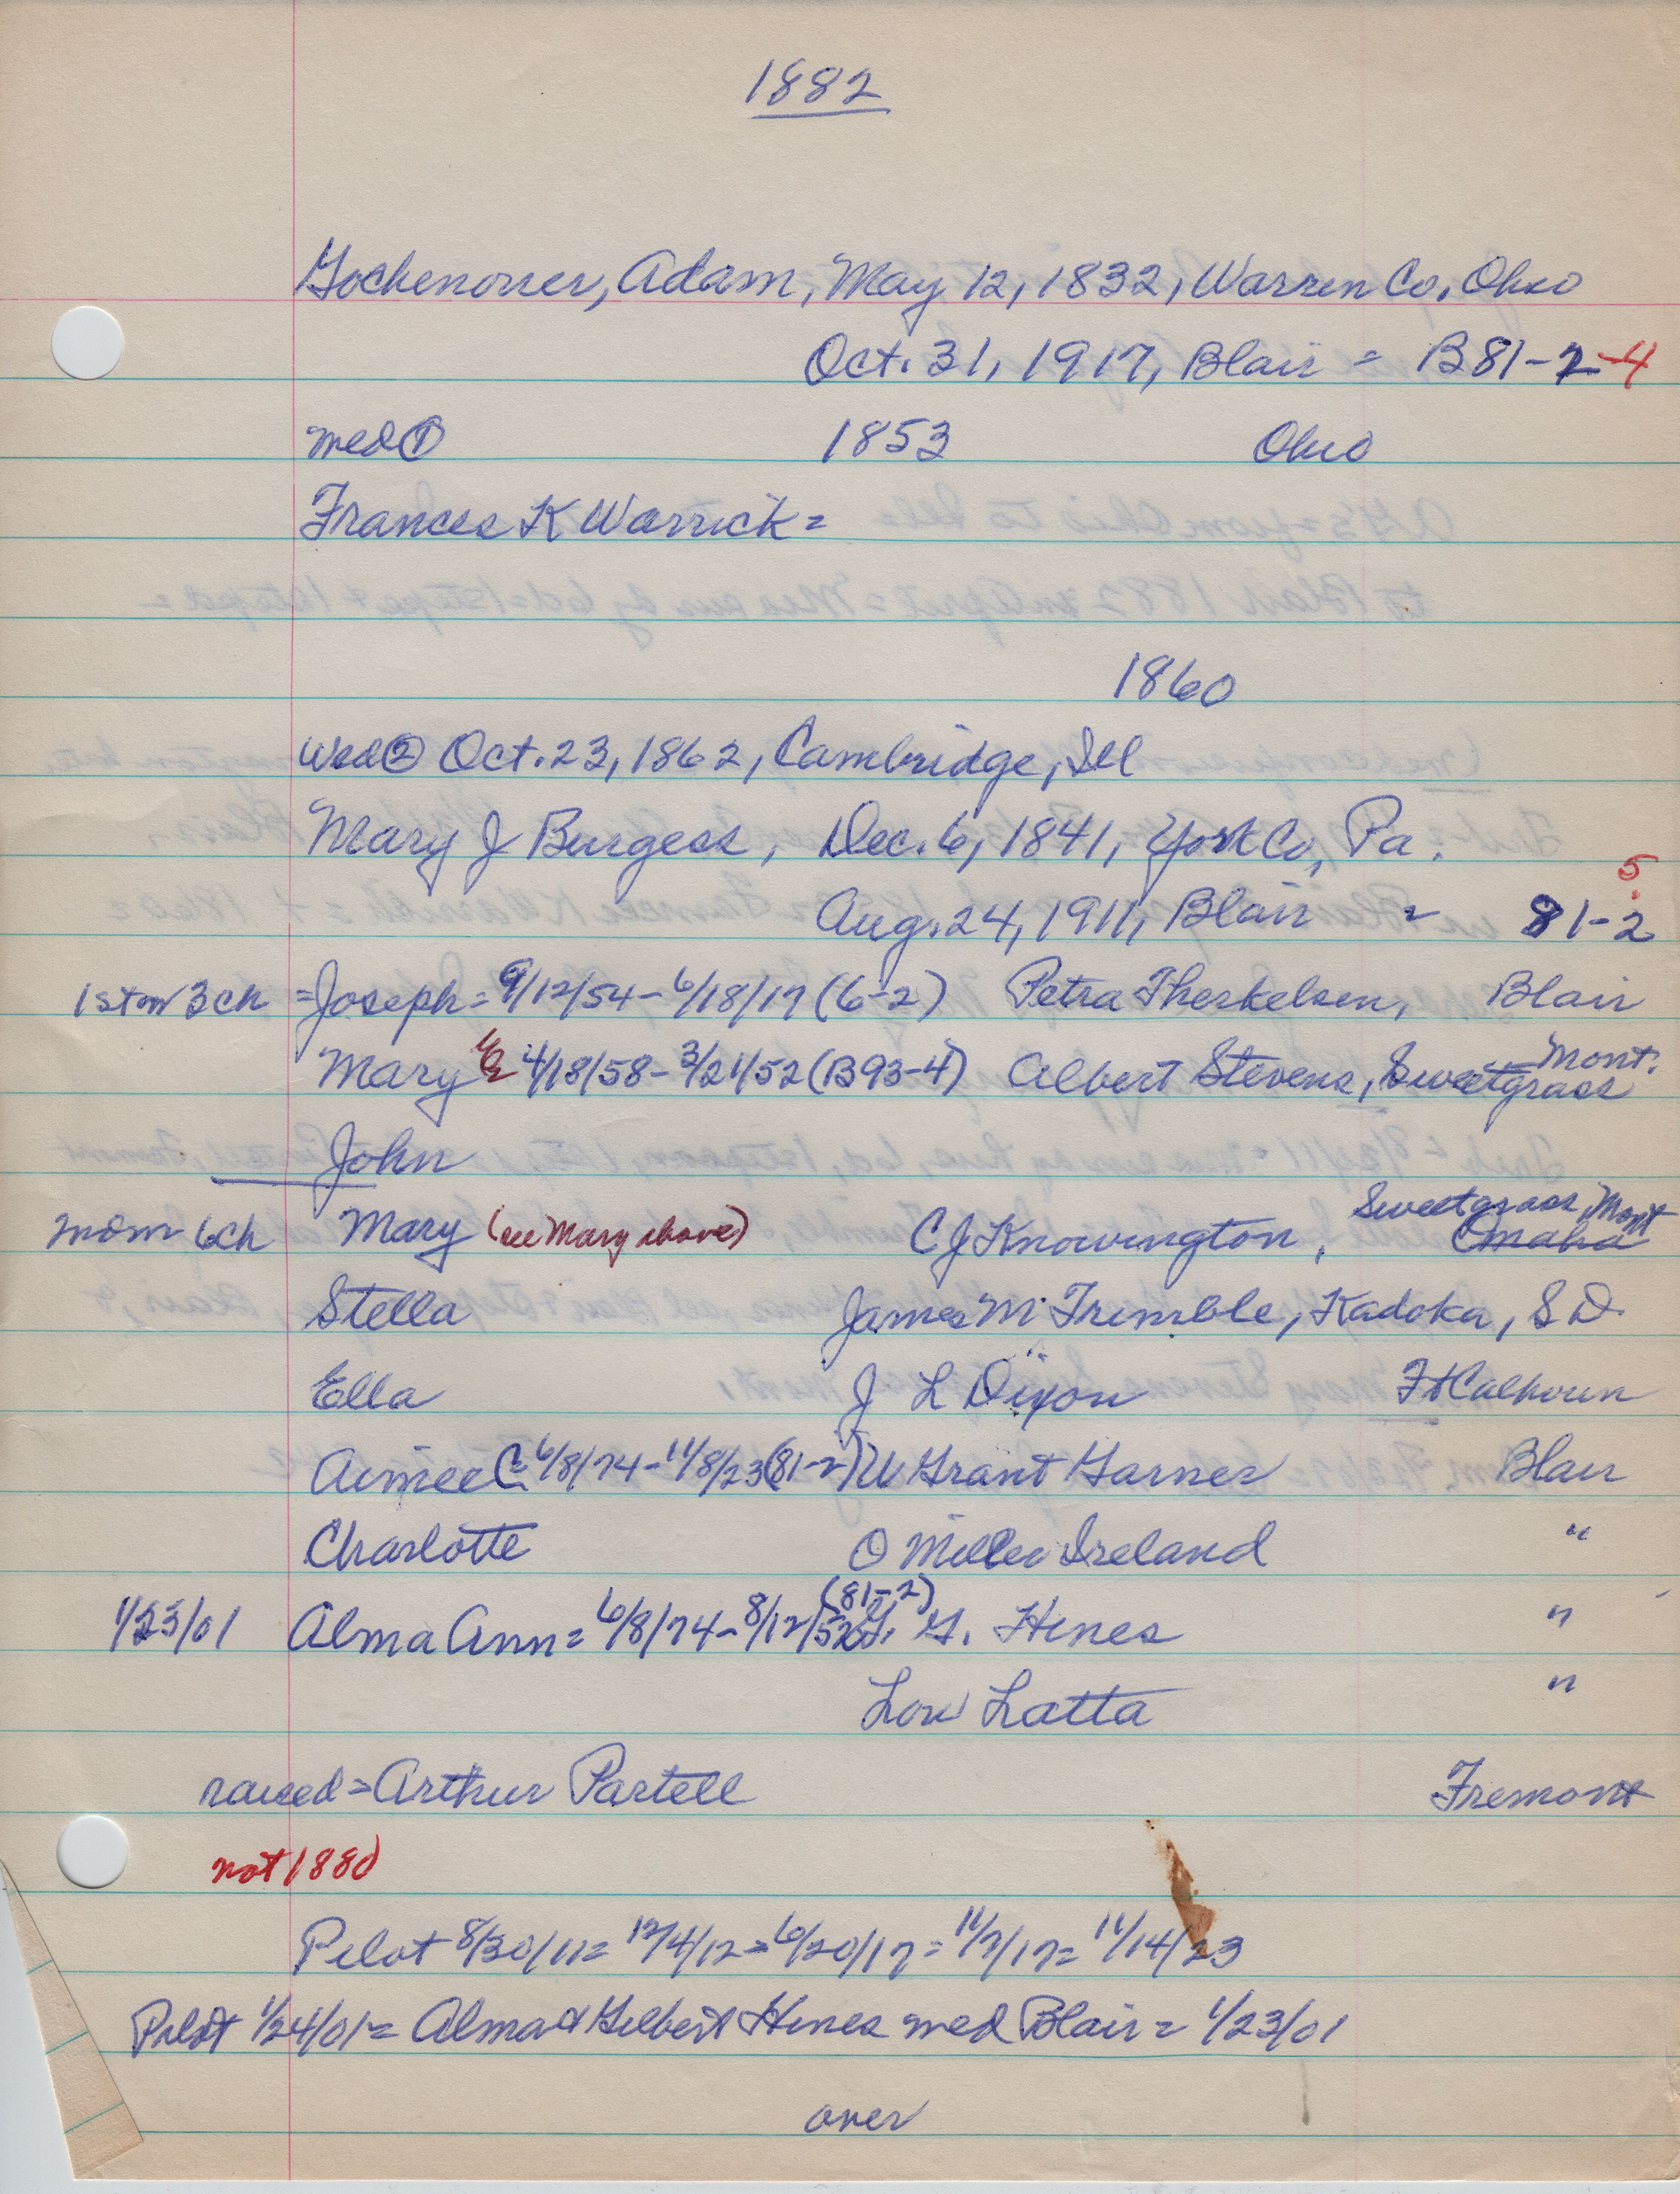 1882
Gochenouer, Adam, May 12, 1832, Warren Co, Ohio
Oct. 31, 1917, Blair = B81-2-4
med ① 1853 Ohio
Frances K Warrick =
1860
wed ② Oct. 23, 1862, Cambridge, Ill
Mary J Burgess, Dec. 6, 1841, York Co, Pa.
5
Aug. 24, 1911, Blair = 81-2
1st m 3 ch = Joseph = 9/12/54 - 6/18/17 (6-2) Petra Therkelsen, Blair
Mary E 4/18/58 - 3/21/52 (B93-4) Albert Stevens, Sweetgrass Mont.
John
2nd m 6 ch Mary (see Mary above) C J Knowington, Omaha Sweetgrass, Mont
Stella James M Trimble, Kadoka, S D.
Ella J L Dixon Ft Calhoun
Aimee C = 6/8/74 - 11/8/23 (81-2) W Grant Garner Blair
Charlotte O Miller Ireland "
(81-2)
1/23/01 Alma Ann = 6/8/74 - 8/12/52 G. G. Hines "
Lou Latta "
raised = Arthur Partell Fremont
not 1880
Pilot 8/30/11 = 12/4/12 = 6/20/17 = 11/7/17 = 11/14/23
Pilot 1/24/01 = Alma & Gilbert Hines med Blair = 1/23/01
over